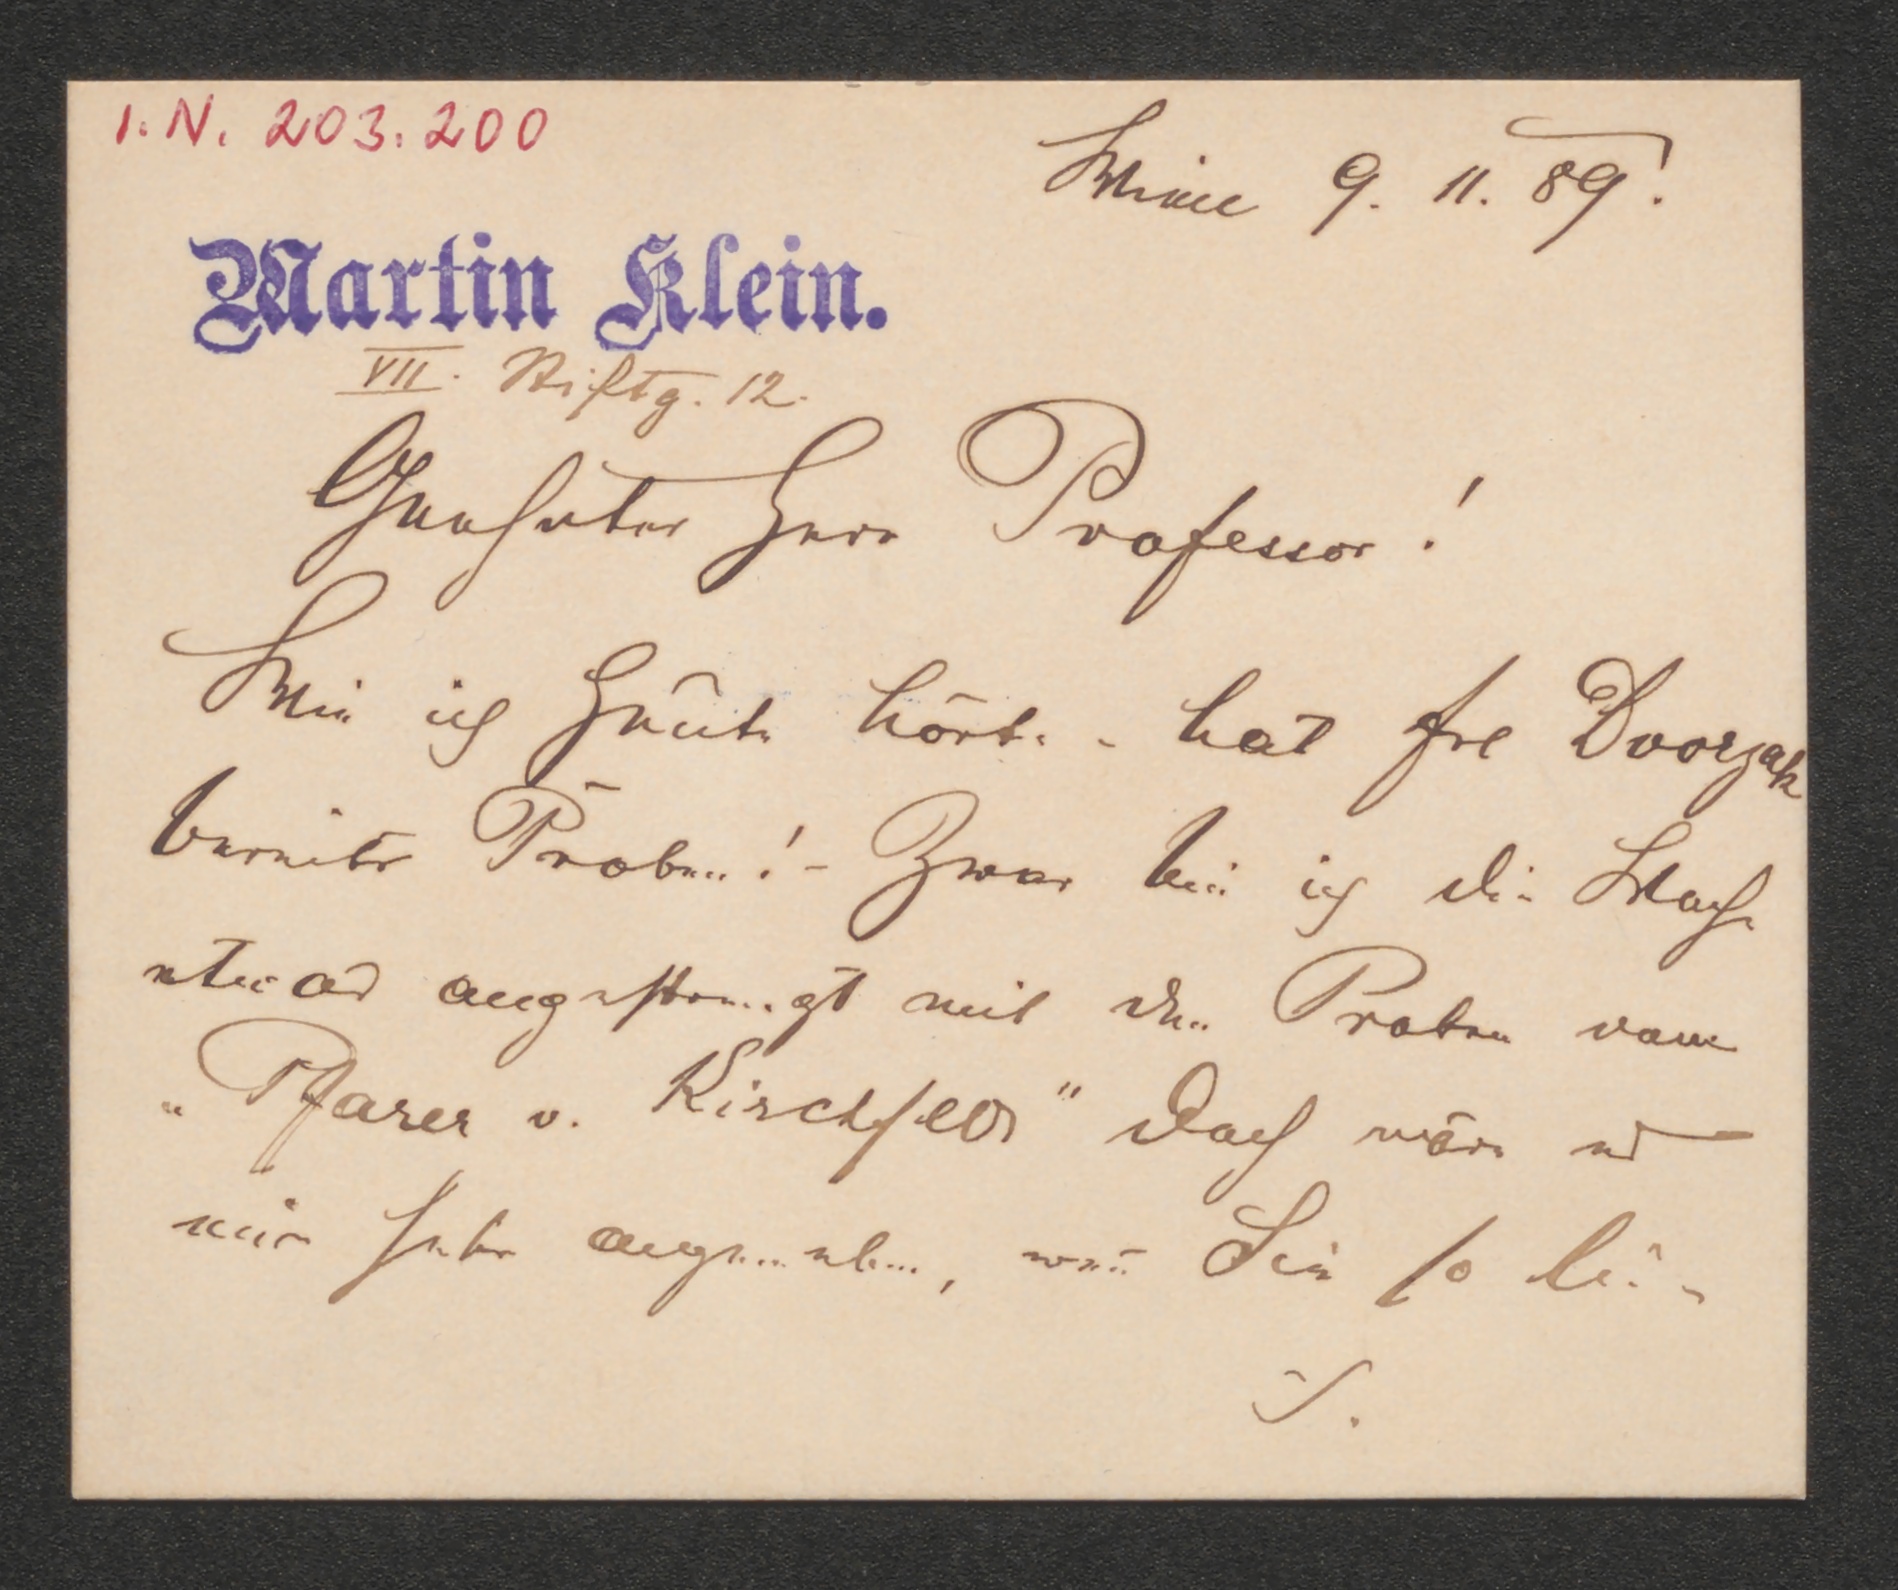 I.N. 203.200
Wien 9. 11. 89.
Martin Klein.
VII. Stiftg. 12.
Geehrter Herr Professor!
Wie ich heute hörte - hat Frl Dvorzak
bereits Proben! - Zwar bin ich die Woche
etwas angestrengt mit den Proben vom
„Pfarer v. Kirchfeld" doch wäre es
mir sehr angenehm, wenn Sie so lie-